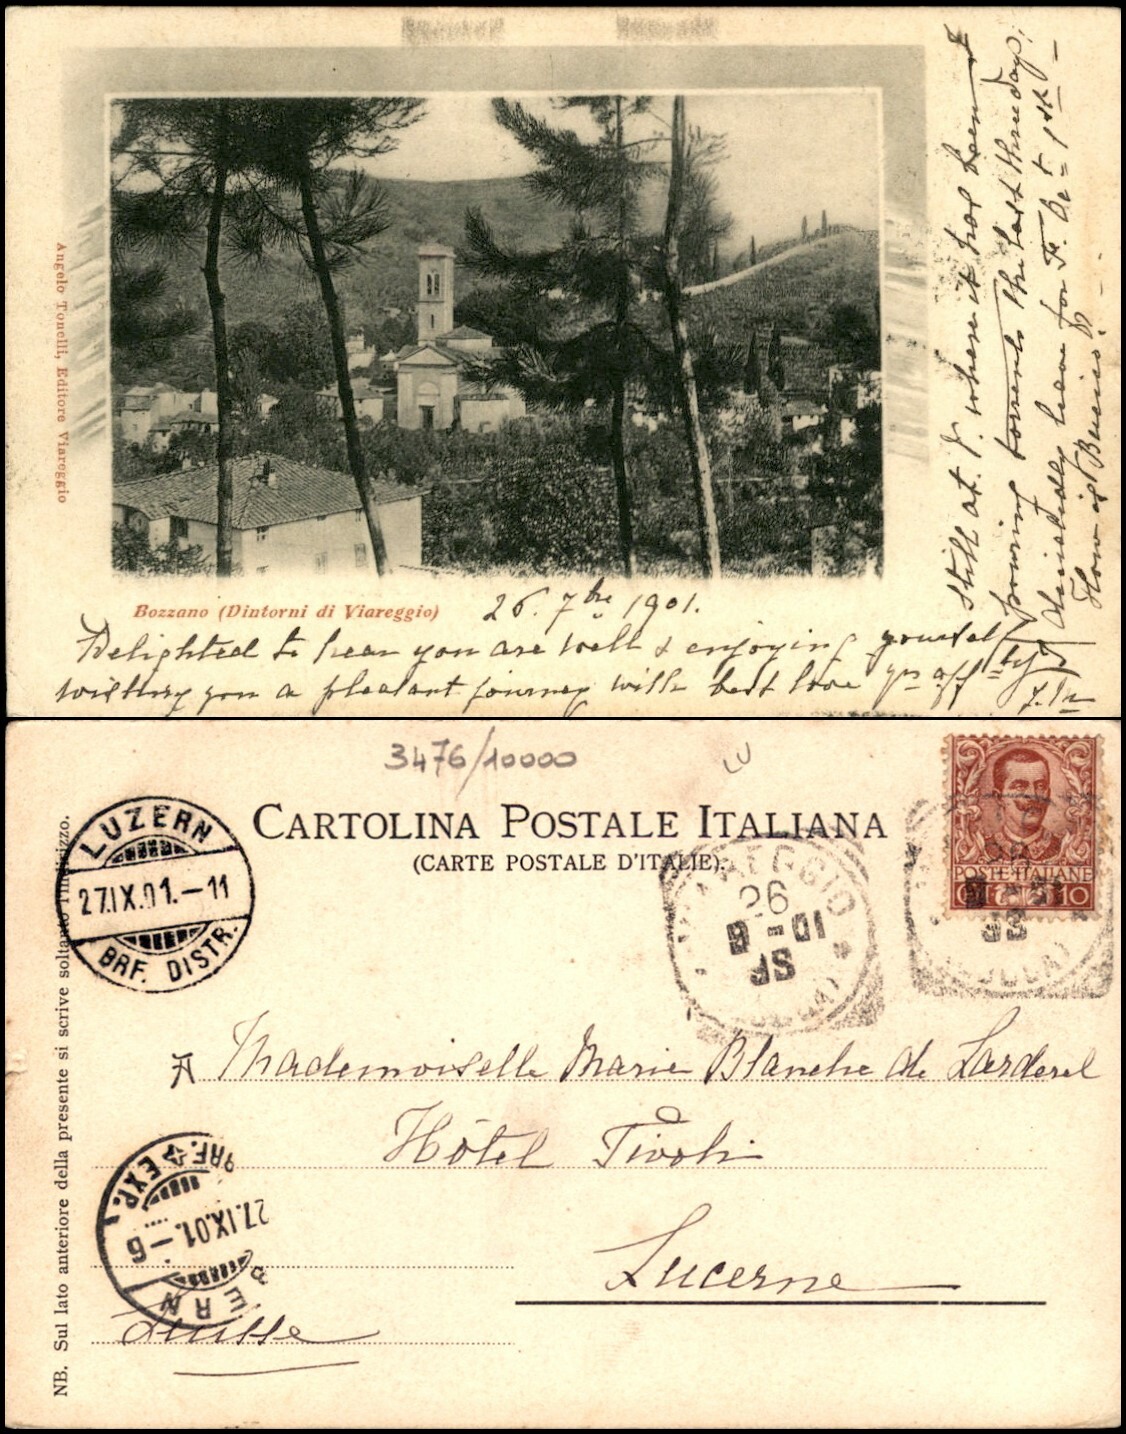 Angelo Tonelli, Editore Viareggio
Bozzano (Dintorni di Viareggio)
26. 7bre 1901.
Delighted to hear you are well & enjoying yourself
wishing you a pleasant journey with best love yrs aff
Still at V. where it has been
pouring torrents the last three days;
decidedly leave for F. Oct 1st
How is Bucino?
3476/10000
LU
CARTOLINA POSTALE ITALIANA
(CARTE POSTALE D'ITALIE).
POSTE ITALIANE
10
VIAREGGIO
26
9-01
5S
LUZERN
27.IX.01.-11
BRF. DISTR.
A Mademoiselle Marie Blanche de Larderel
Hôtel Tivoli
Lucerne
Suisse
BERN
27.IX.01.-6
BRF. EXP.
NB. Sul lato anteriore della presente si scrive soltanto l'indirizzo.